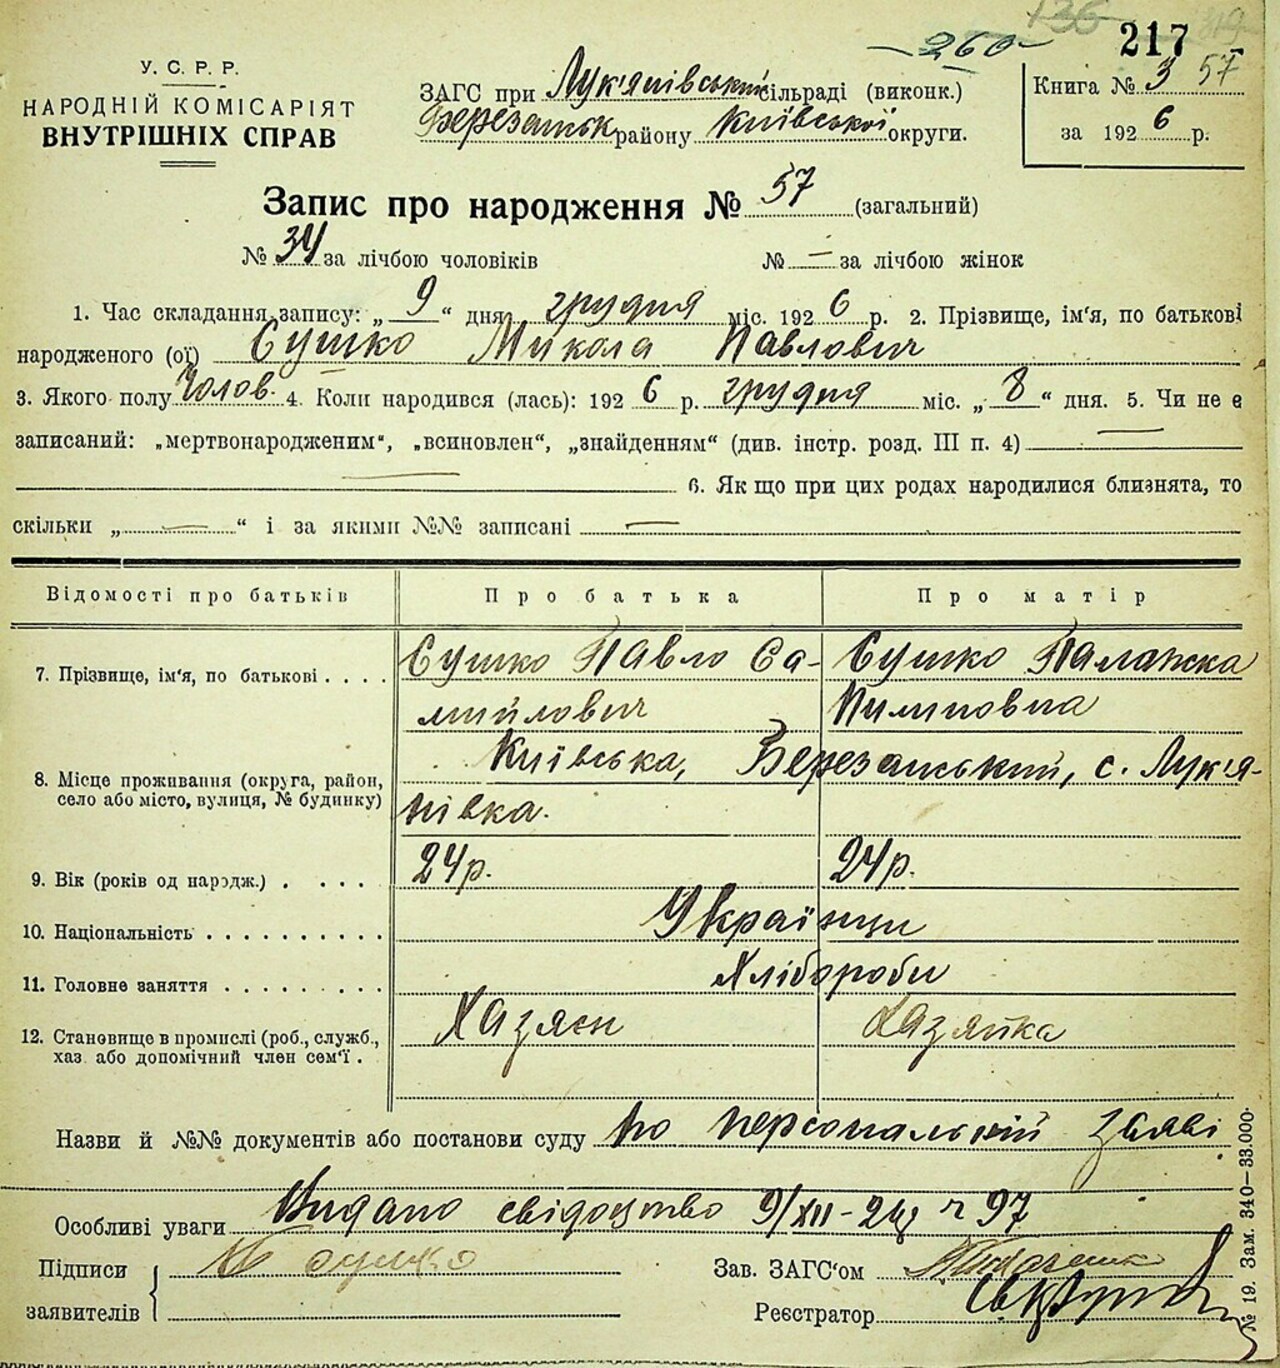 136 319
-260- 217
У. С. Р. Р.
НАРОДНІЙ КОМІСАРІЯТ
ВНУТРІШНІХ СПРАВ
ЗАГС при Лук'янівській сільраді (виконк.)
Березанськ району Київської округи.
Книга № 3 57
за 1926 р.
Запис про народження № 57 (загальний)
№ 34 за лічбою чоловіків № — за лічбою жінок
1. Час складання запису: „ 9 “ дня грудня міс. 1926 р. 2. Прізвище, ім'я, по батькові
народженого (ої) Сушко Микола Павлович
3. Якого полу Чолов. 4. Коли народився (лась): 1926 р. грудня міс. „ 8 “ дня. 5. Чи не є
записаний: „мертвонародженим“, „всиновлен“, „знайденням“ (див. інстр. розд. III п. 4) —
— 6. Як що при цих родах народилися близнята, то
скільки „ — “ і за якими №№ записані —
Відомості про батьків Про батька Про матір
7. Прізвище, ім'я, по батькові . . . . Сушко Павло Са- Сушко Палажка
мийлович Пилиповна
8. Місце проживання (округа, район, Київська, Березанський, с. Лук'я-
село або місто, вулиця, № будинку) нівка.
9. Вік (років од народж.) . . . . 24 р. 24 р.
10. Національність . . . . . . . . . . Українци
11. Головне заняття . . . . . . . . . Хлібороби
12. Становище в промислі (роб., служб., Хазяєн Хазяйка
хаз. або допомічний член сем'ї .
Назви й №№ документів або постанови суду по персональній заяві
Особливі уваги Видано свідоцтво 9/XII-26 р 97
Підписи П Сушко Зав. ЗАГС'ом
заявителів Реєстратор
№ 19. Зам. 340—33.000.